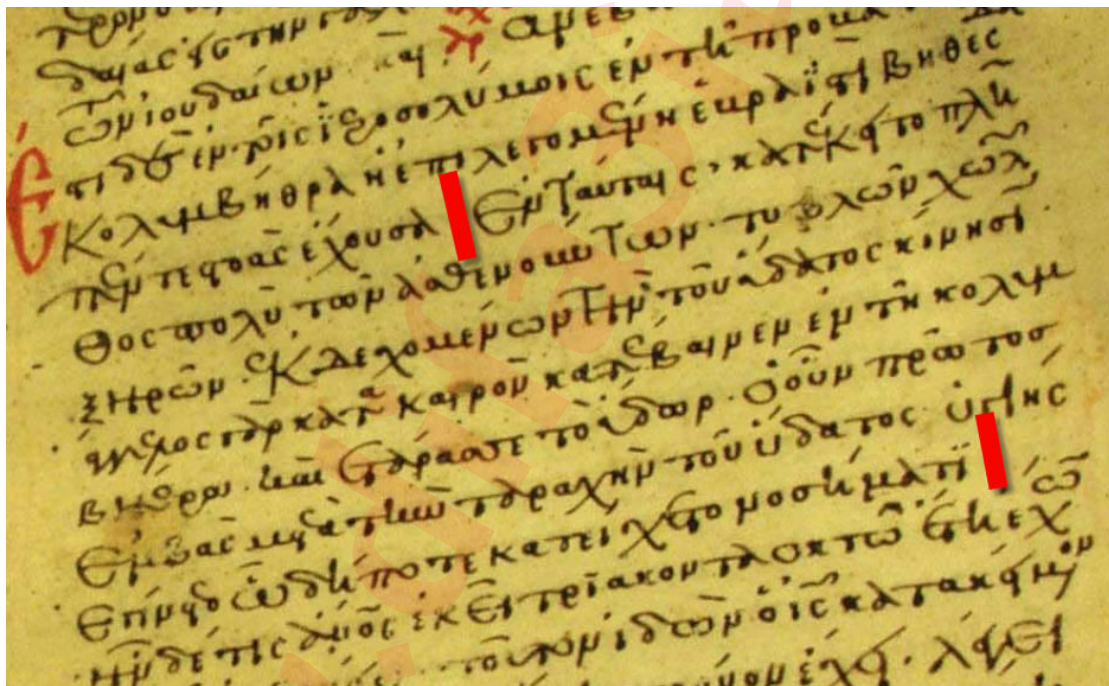 τῶν ἰουδαίων. καὶ
Ἔστι δὲ ἐν τοῖς ἱεροσολύμοις ἐν τῇ
κολυμβήθρα ἡ ἐπιλεγομένη ἑβραϊστὶ βηθεσ
πέντε στοὰς ἔχουσα Ἐν ταύταις κατέκειτο πλῆ
θος πολὺ τῶν ἀσθενούντων. τυφλῶν χωλῶν
ξηρῶν. ἐκδεχομένων τὴν τοῦ ὕδατος κίνησιν.
ἄγγελος γὰρ κατὰ καιρὸν κατέβαινεν ἐν τῇ κολυμ
βήθρα. καὶ ἐτάρασσε τὸ ὕδωρ. ὁ οὖν πρῶτος
ἐμβὰς μετὰ τὴν ταραχὴν τοῦ ὕδατος. ὑγιὴς
ἐγίνετο ᾧ δήποτε κατείχετο νοσήματι
ἦν δέ τις ἄνος ἐκεῖ τριακονταοκτὼ ἔτη ἔχων
τοῦτον ἰδὼν ὁ ις κατακείμενον
χρόνον ἔχει. λέγει